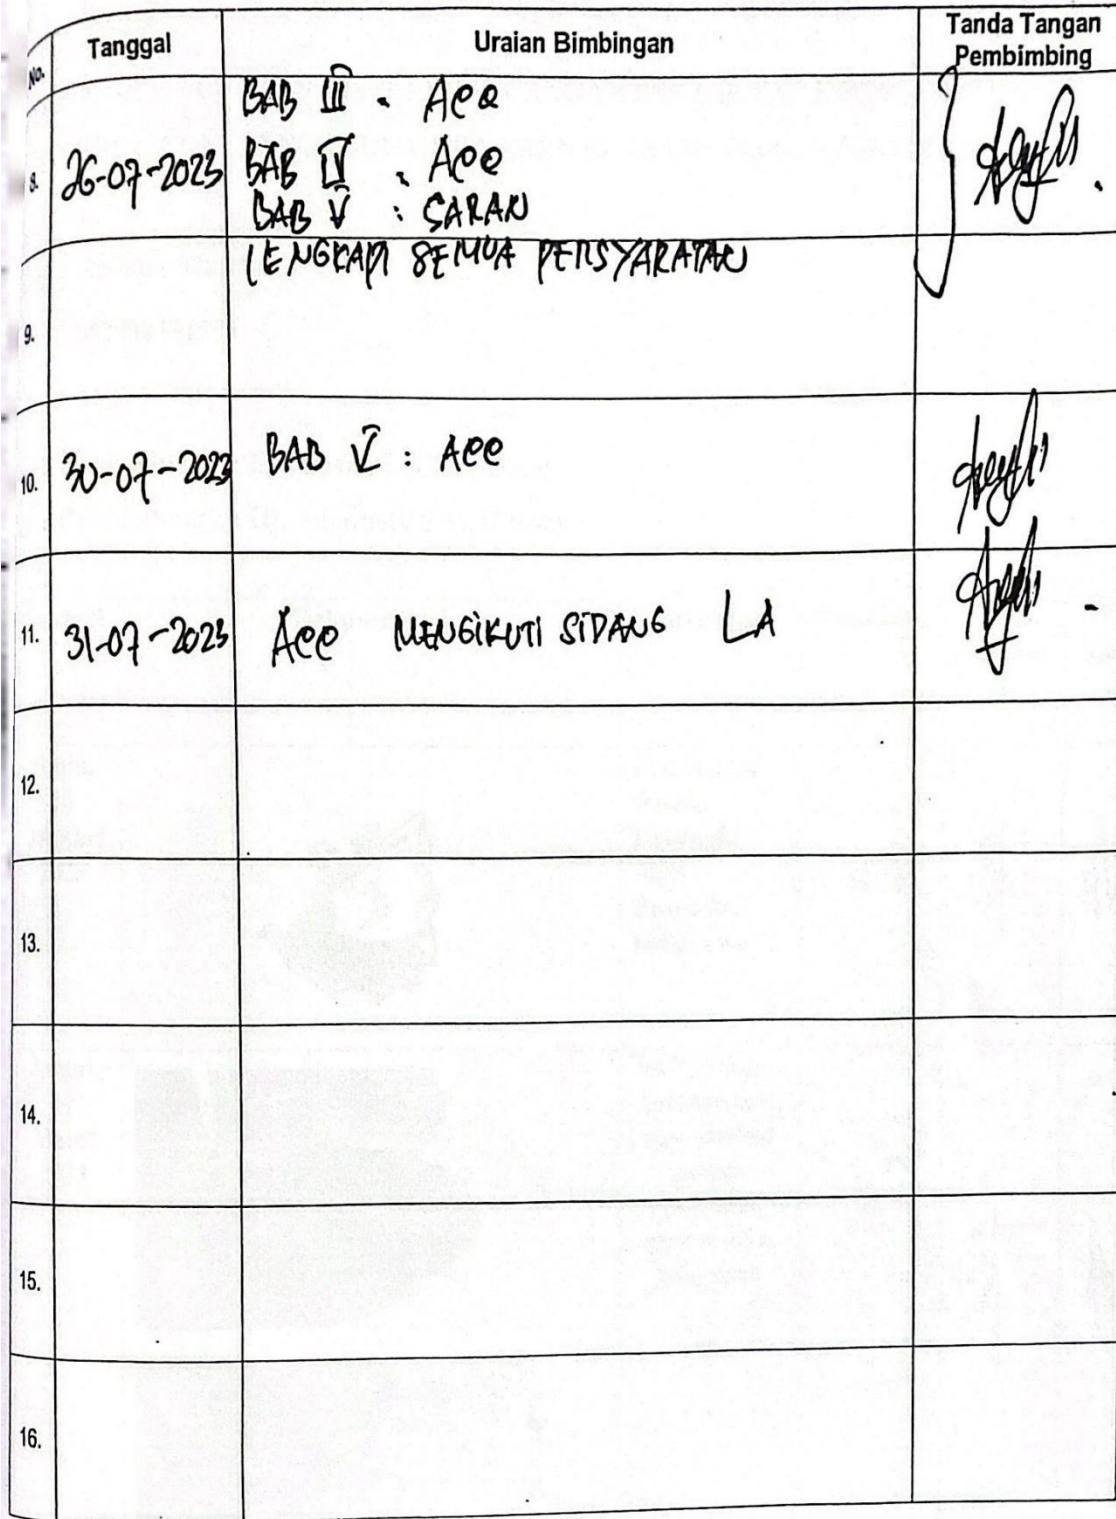 No. Tanggal Uraian Bimbingan Tanda Tangan Pembimbing
BAB III. Acc
8. 26-07-2023 BAB IV. Acc
BAB V : SARAN
LENGKAPI SEMUA PERSYARATAN
9.
10. 30-07-2023 BAB V : Acc
11. 31-07-2023 Acc MENGIKUTI SIDANG LA
12.
13.
14.
15.
16.